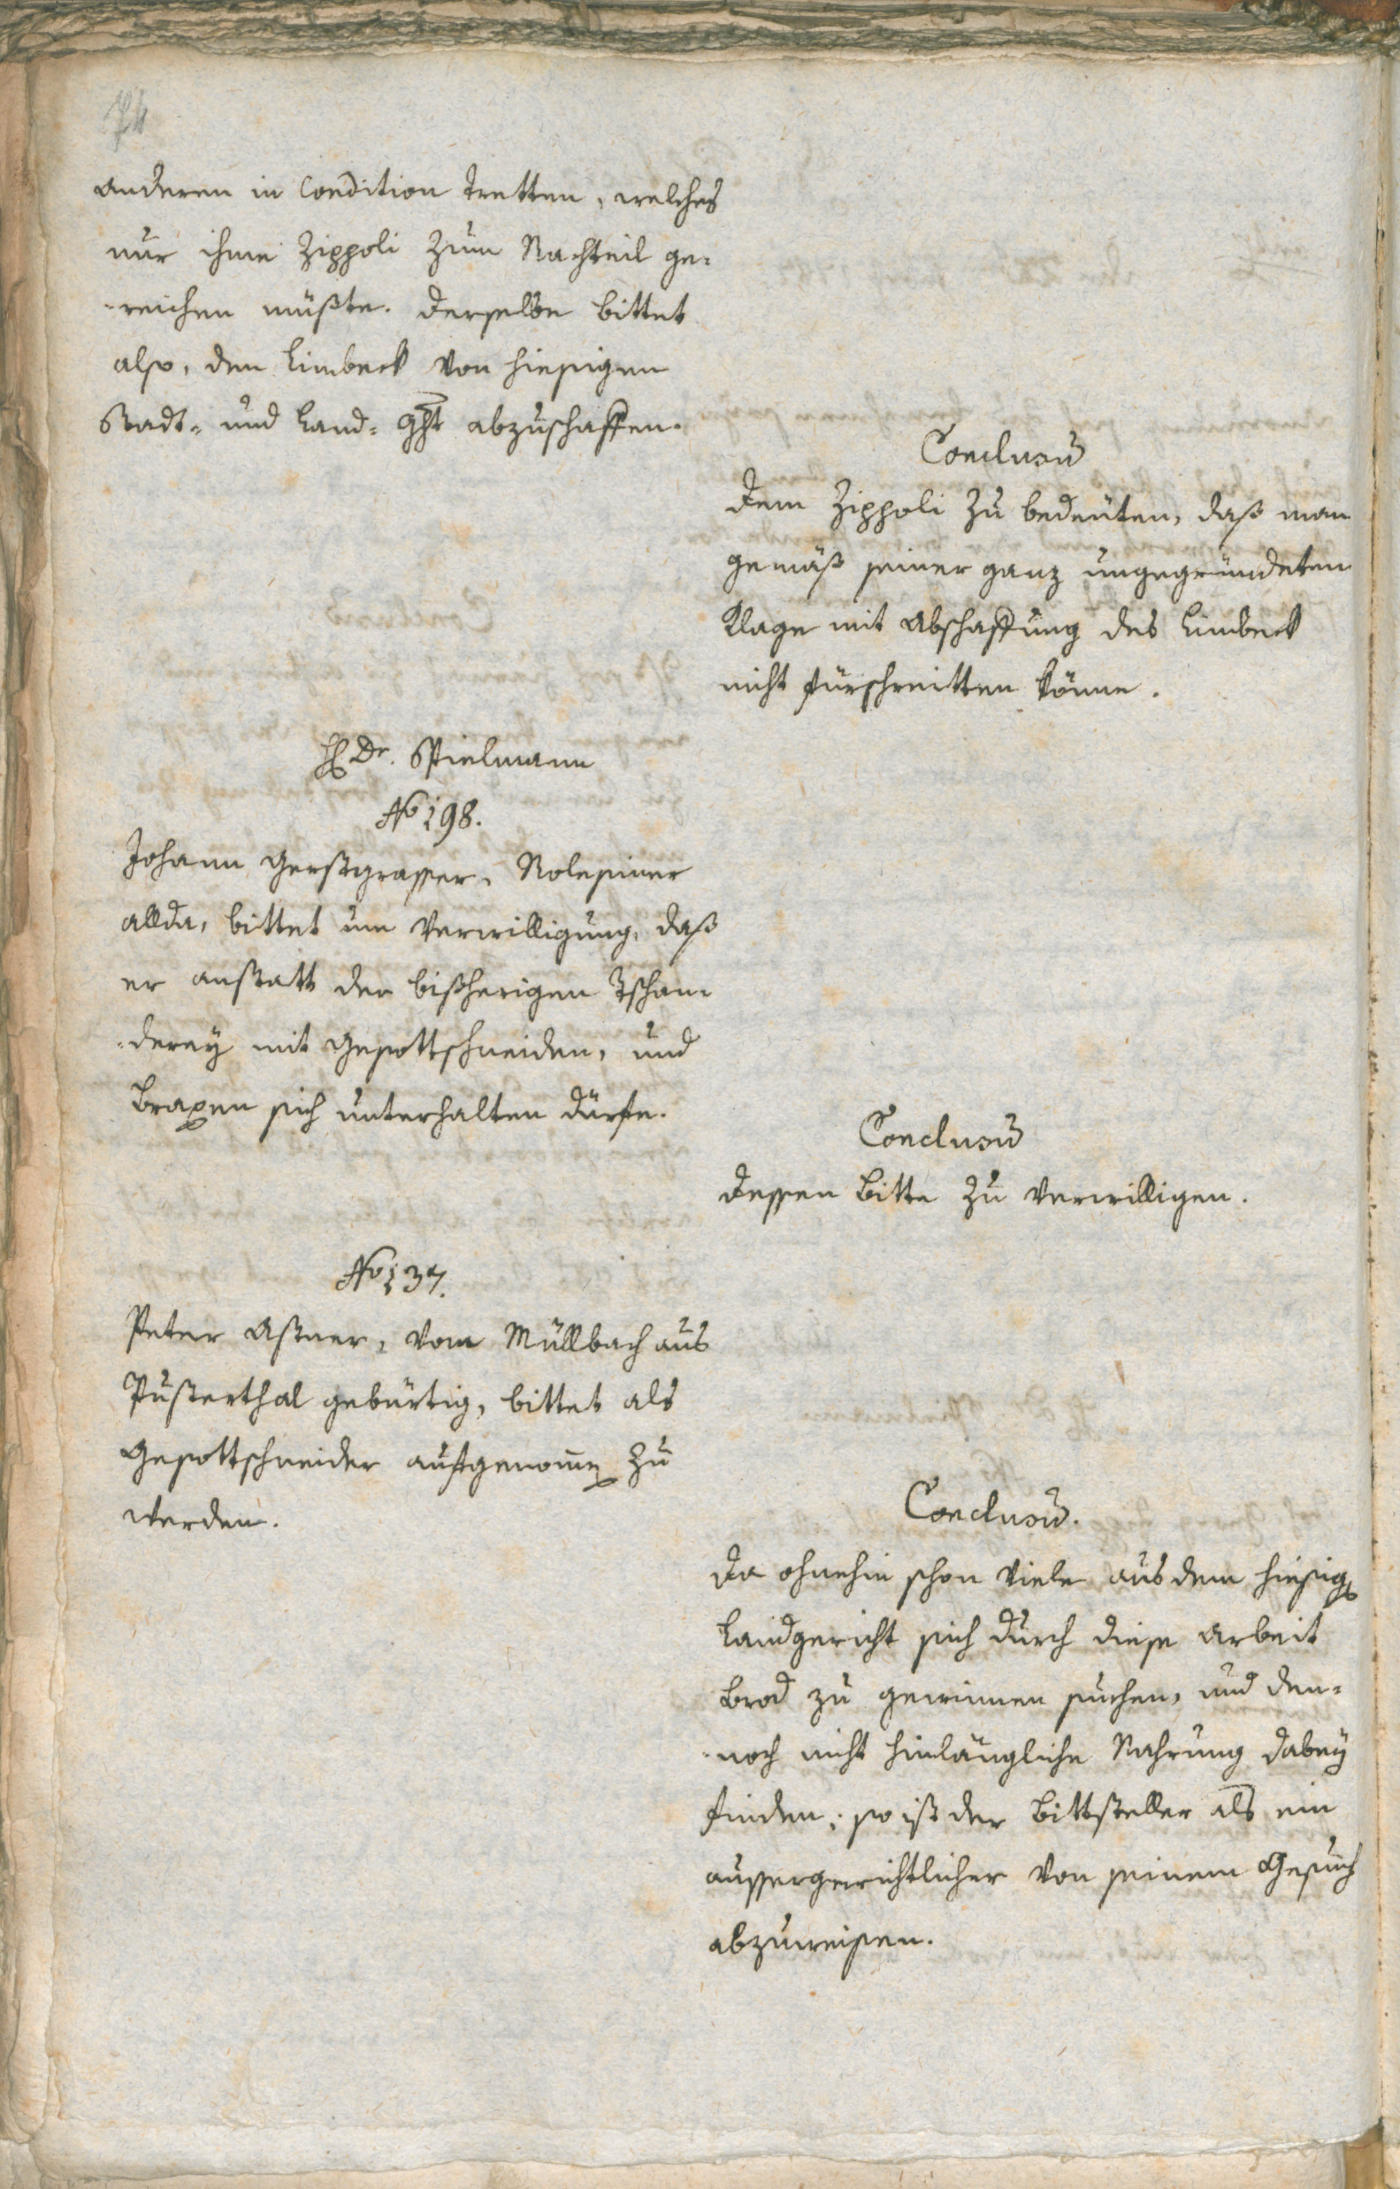 74
anderen in Condition tretten, welches
nur ihme Zippoli zum Nachteil ge-
-reichen müßte. Derselbe bittet
also, den Limbeck von hiesigen
Stadt- und Land- Ght abzuschaffen.
Conclusū
Dem Zippoli zu bedeuten, daß man
gemäß seiner ganz ungegründeten
Klage mit Abschaffung des Limbeck
nicht fürschreitten könne.
H Dr. Spielmann
No 198.
Johann Gerstgrasser, Rolesiner
allda, bittet um Verwilligung, daß
er anstatt der bißherigen Tschan-
-derey mit Gesottschneiden, und
Braxen sich unterhalten dürfe.
Conclusū
Dessen Bitte zu verwilligen.
No 137.
Peter Aßner, vom Müllbach aus
Pusterthal gebürtig, bittet als
Gesottschneider aufgenom̄en zu
werden.
Conclusū.
Da ohnehin schon viele aus dem hiesigen
Landgericht sich durch diese Arbeit
Brod zu gewinnen suchen, und den-
-noch nicht hinlängliche Nahrung dabey
finden; so ist der Bittsteller als ein
aussergerichtlicher von seinem Gesuch
abzuweisen.